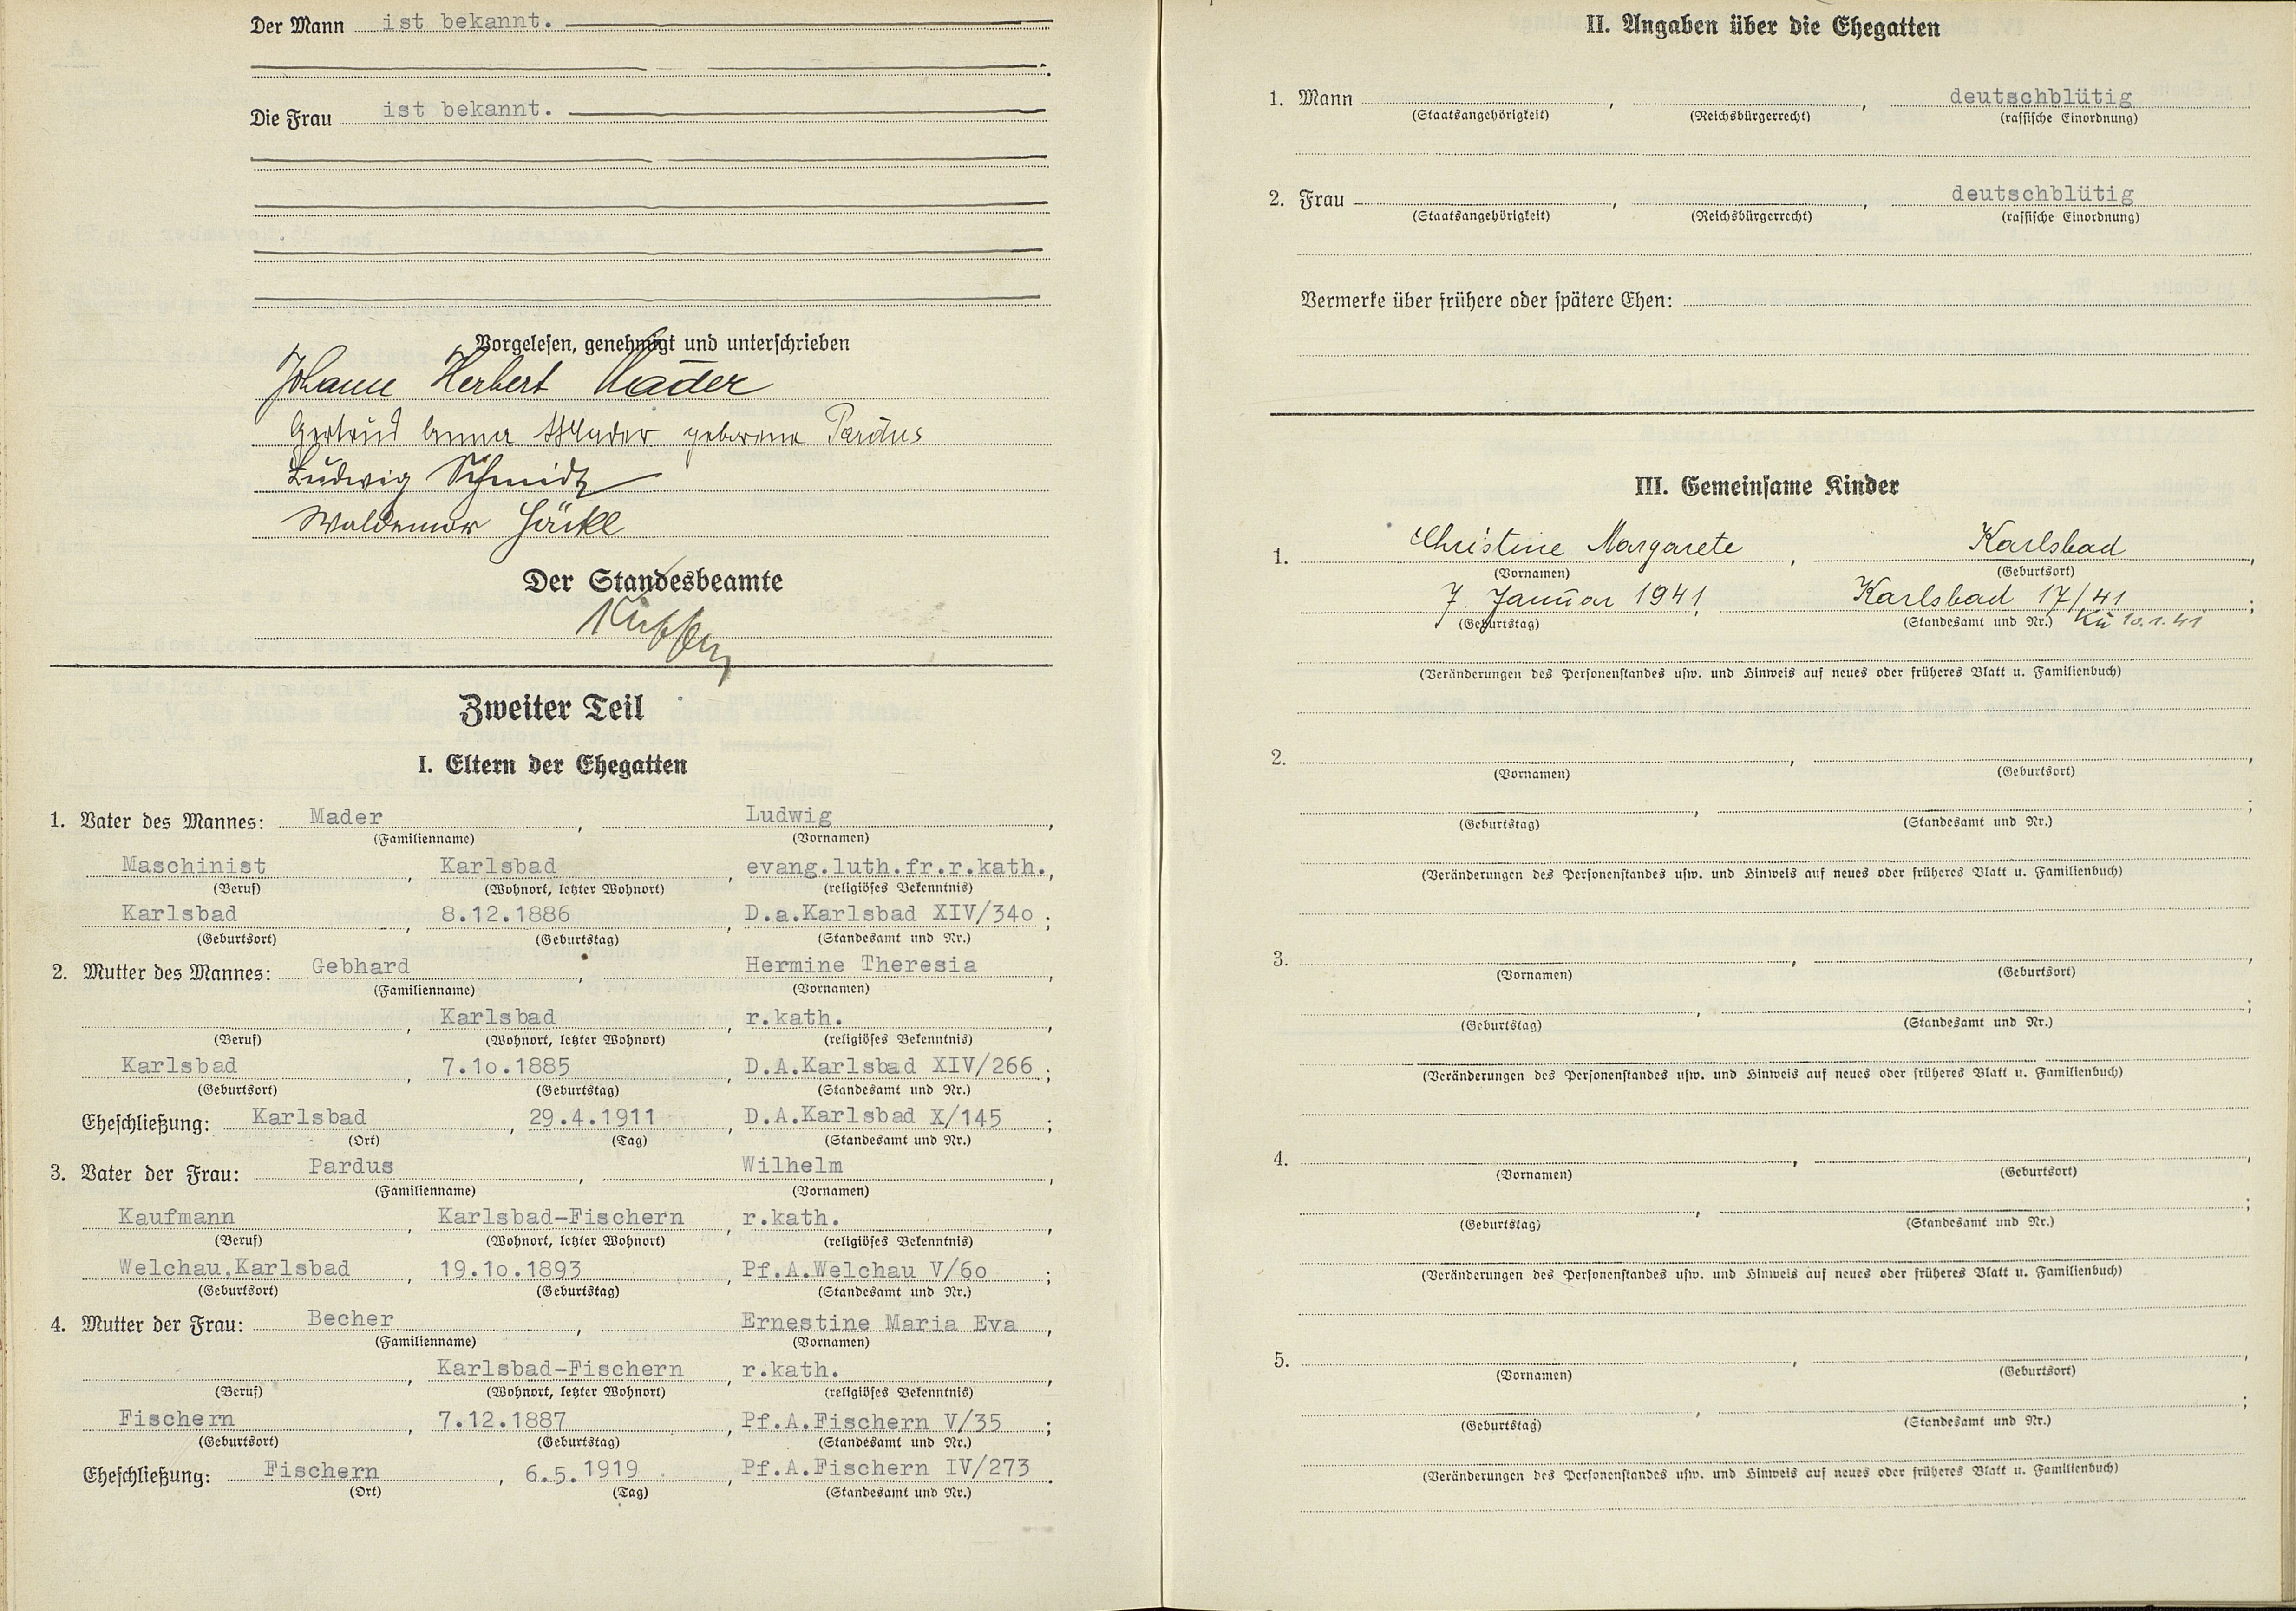 Der Mann ist bekannt.
Die Frau ist bekannt.
Vorgelesen, genehmigt und unterschrieben
Johann Herbert Mader
Gertrud Anna Mader geborene Pardus
Ludwig Schmidt
Waldemar Häckl
Der Standesbeamte
Zweiter Teil
I. Eltern der Ehegatten
1. Vater des Mannes: Mader, Ludwig,
(Familienname) (Vornamen)
Maschinist, Karlsbad, evang.luth.fr.r.kath.,
(Beruf) (Wohnort, letzter Wohnort) (religiöses Bekenntnis)
Karlsbad, 8.12.1886, D.a.Karlsbad XIV/34o;
(Geburtsort) (Geburtstag) (Standesamt und Nr.)
2. Mutter des Mannes: Gebhard, Hermine Theresia,
(Familienname) (Vornamen)
, Karlsbad, r.kath.,
(Beruf) (Wohnort, letzter Wohnort) (religiöses Bekenntnis)
Karlsbad, 7.1o.1885, D.A.Karlsbad XIV/266;
(Geburtsort) (Geburtstag) (Standesamt und Nr.)
Eheschließung: Karlsbad, 29.4.1911, D.A.Karlsbad X/145;
(Ort) (Tag) (Standesamt und Nr.)
3. Vater der Frau: Pardus, Wilhelm,
(Familienname) (Vornamen)
Kaufmann, Karlsbad-Fischern, r.kath.,
(Beruf) (Wohnort, letzter Wohnort) (religiöses Bekenntnis)
Welchau,Karlsbad, 19.1o.1893, Pf.A.Welchau V/6o;
(Geburtsort) (Geburtstag) (Standesamt und Nr.)
4. Mutter der Frau: Becher, Ernestine Maria Eva,
(Familienname) (Vornamen)
, Karlsbad-Fischern, r.kath.,
(Beruf) (Wohnort, letzter Wohnort) (religiöses Bekenntnis)
Fischern, 7.12.1887, Pf.A.Fischern V/35;
(Geburtsort) (Geburtstag) (Standesamt und Nr.)
Eheschließung: Fischern, 6.5.1919, Pf.A.Fischern IV/273.
(Ort) (Tag) (Standesamt und Nr.)
II. Angaben über die Ehegatten
1. Mann , , deutschblütig
(Staatsangehörigkeit) (Reichsbürgerrecht) (rassische Einordnung)
2. Frau , , deutschblütig
(Staatsangehörigkeit) (Reichsbürgerrecht) (rassische Einordnung)
Vermerke über frühere oder spätere Ehen:
III. Gemeinsame Kinder
1. Christine Margarete, Karlsbad,
(Vornamen) (Geburtsort)
7. Januar 1941, Karlsbad 17/41;
(Geburtstag) (Standesamt und Nr.) Kü 10.1.41
(Veränderungen des Personenstandes usw. und Hinweis auf neues oder früheres Blatt u. Familienbuch)
2. , ,
(Vornamen) (Geburtsort)
, ;
(Geburtstag) (Standesamt und Nr.)
(Veränderungen des Personenstandes usw. und Hinweis auf neues oder früheres Blatt u. Familienbuch)
3. , ,
(Vornamen) (Geburtsort)
, ;
(Geburtstag) (Standesamt und Nr.)
(Veränderungen des Personenstandes usw. und Hinweis auf neues oder früheres Blatt u. Familienbuch)
4. , ,
(Vornamen) (Geburtsort)
, ;
(Geburtstag) (Standesamt und Nr.)
(Veränderungen des Personenstandes usw. und Hinweis auf neues oder früheres Blatt u. Familienbuch)
5. , ,
(Vornamen) (Geburtsort)
, ;
(Geburtstag) (Standesamt und Nr.)
(Veränderungen des Personenstandes usw. und Hinweis auf neues oder früheres Blatt u. Familienbuch)